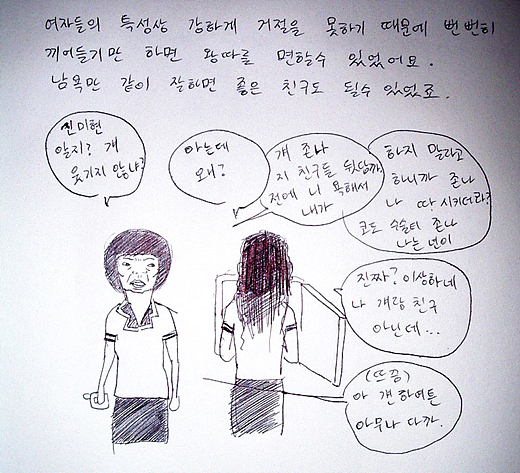 여자들의 특성상 강하게 거절을 못하기 때문에 뻔뻔히
끼어들기만 하면 왕따를 면할수 있었어요.
남욕만 같이 잘하면 좋은 친구도 될수 있었죠.
신미현
알지? 걔
웃기지 않냐?
아는데
왜?
걔 존나
지 친구들 뒷담까
전에 니 욕해서
내가
하지 말라고
하니까 존나
나 따 시키더라?
코도 수술티 존나
나는 년이
진짜? 이상하네
나 걔랑 친구
아닌데...
(뜨끔)
아 걘 하여튼
아무나 다까.